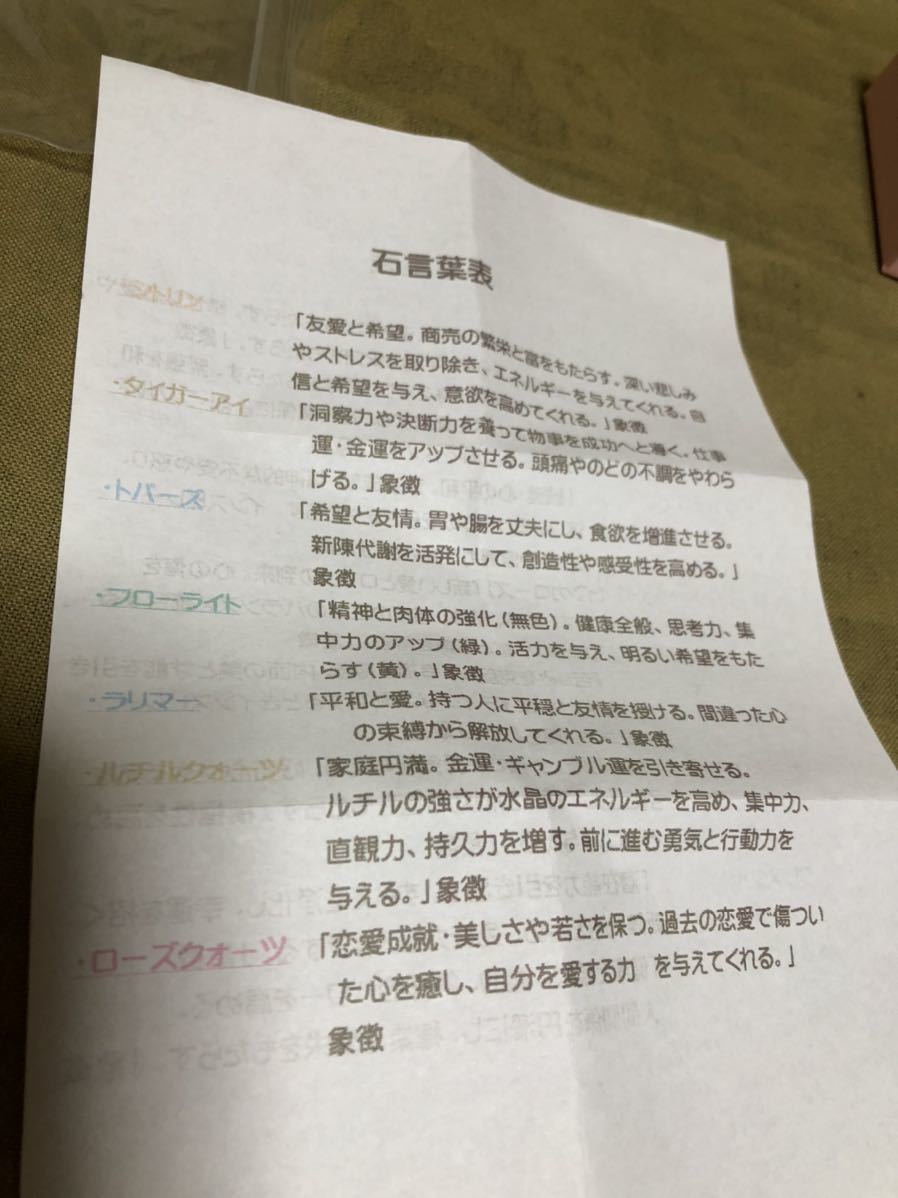 石言葉表
シトリン
「友愛と希望。商売の繁栄と富をもたらす。深い悲しみ
やストレスを取り除き、エネルギーを与えてくれる。自
信と希望を与え、意欲を高めてくれる。」象徴
・タイガーアイ
「洞察力や決断力を養って物事を成功へと導く。仕事
運・金運をアップさせる。頭痛やのどの不調をやわら
げる。」象徴
・トパーズ
「希望と友情。胃や腸を丈夫にし、食欲を増進させる。
新陳代謝を活発にして、創造性や感受性を高める。」
象徴
・フローライト
「精神と肉体の強化(無色)。健康全般、思考力、集
中力のアップ(緑)。活力を与え、明るい希望をもた
らす(黄)。」象徴
・ラリマー
「平和と愛。持つ人に平穏と友情を授ける。間違った心
の束縛から解放してくれる。」象徴
・ルチルクォーツ
「家庭円満。金運・ギャンブル運を引き寄せる。
ルチルの強さが水晶のエネルギーを高め、集中力、
直観力、持久力を増す。前に進む勇気と行動力を
与える。」象徴
・ローズクォーツ
「恋愛成就・美しさや若さを保つ。過去の恋愛で傷つい
た心を癒し、自分を愛する力 を与えてくれる。」
象徴